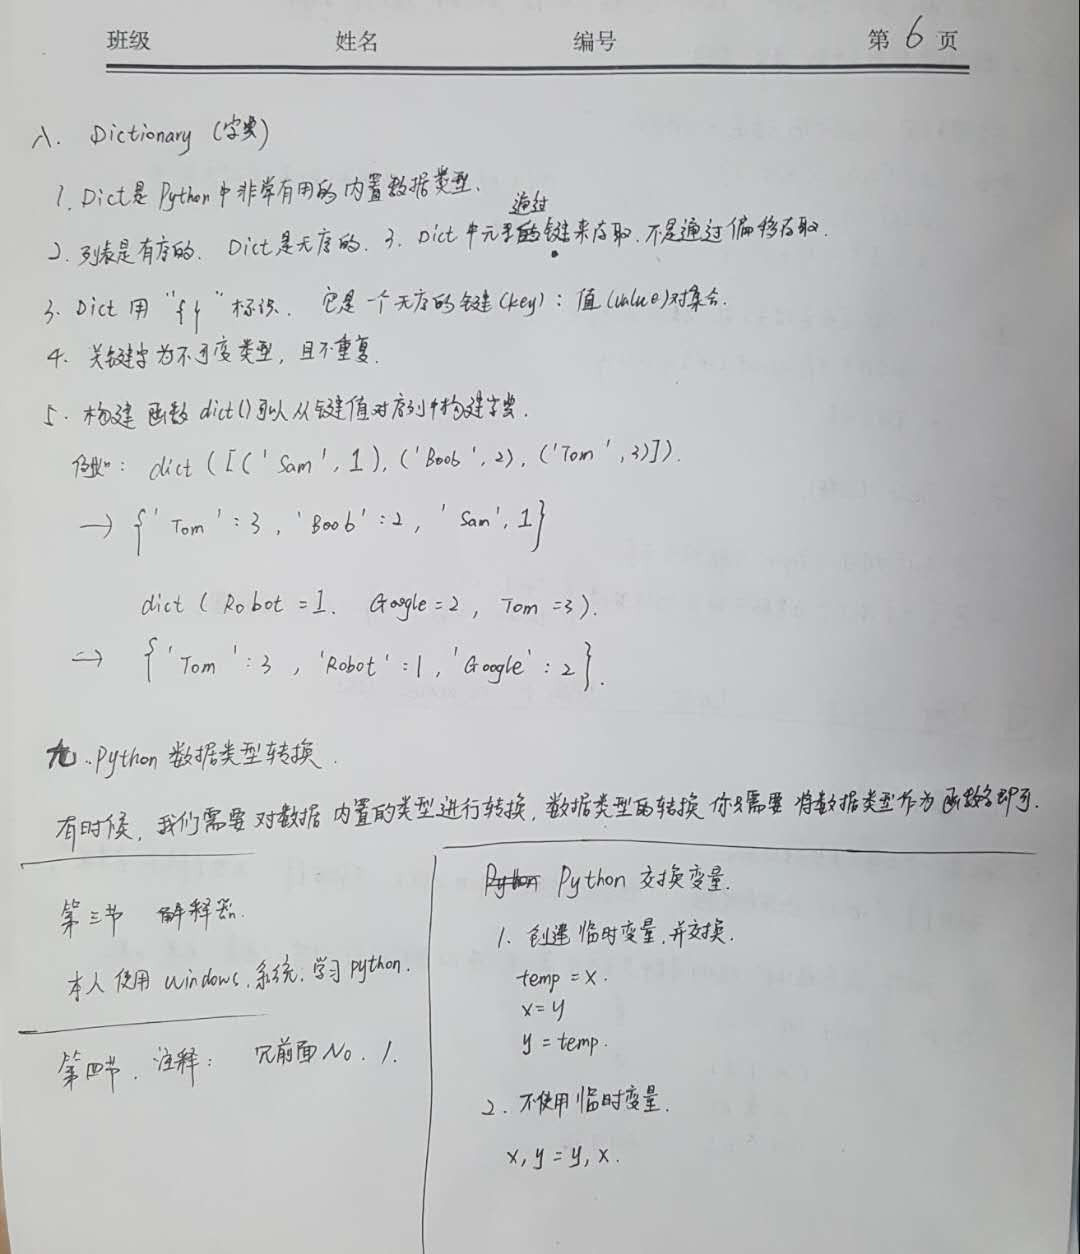 班级 姓名 编号 第 6 页
八. Dictionary (字典)
1. Dict是 Python中非常有用的内置数据类型.
2. 列表是有序的. Dict是无序的. 3. Dict中元素的通过键来存取. 不是通过偏移存取.
3. Dict 用 "{ }" 标识. 它是一个无序的键(key) : 值(value)对集合.
4. 关键字为不可变类型, 且不重复.
5. 构建函数 dict()可以从键值对序列中构建字典.
例如: dict ([('Sam', 1), ('Boob', 2), ('Tom', 3)]).
→ {'Tom' : 3, 'Boob' : 2, 'Sam', 1}
dict ( Robot = 1. Google = 2, Tom = 3).
⇒ {'Tom' : 3, 'Robot' = 1, 'Google' : 2}.
九.. Python 数据类型转换.
有时候, 我们需要对数据内置的类型进行转换, 数据类型的转换你只需要将数据类型作为函数名即可.
第三节 解释
本人使用 windows. 系统. 学习 python.
第四节. 注释: 见前面 No. 1.
Python Python 交换变量.
1. 创建临时变量. 并交换.
temp = x.
x = y
y = temp.
2. 不使用临时变量.
x, y = y, x.